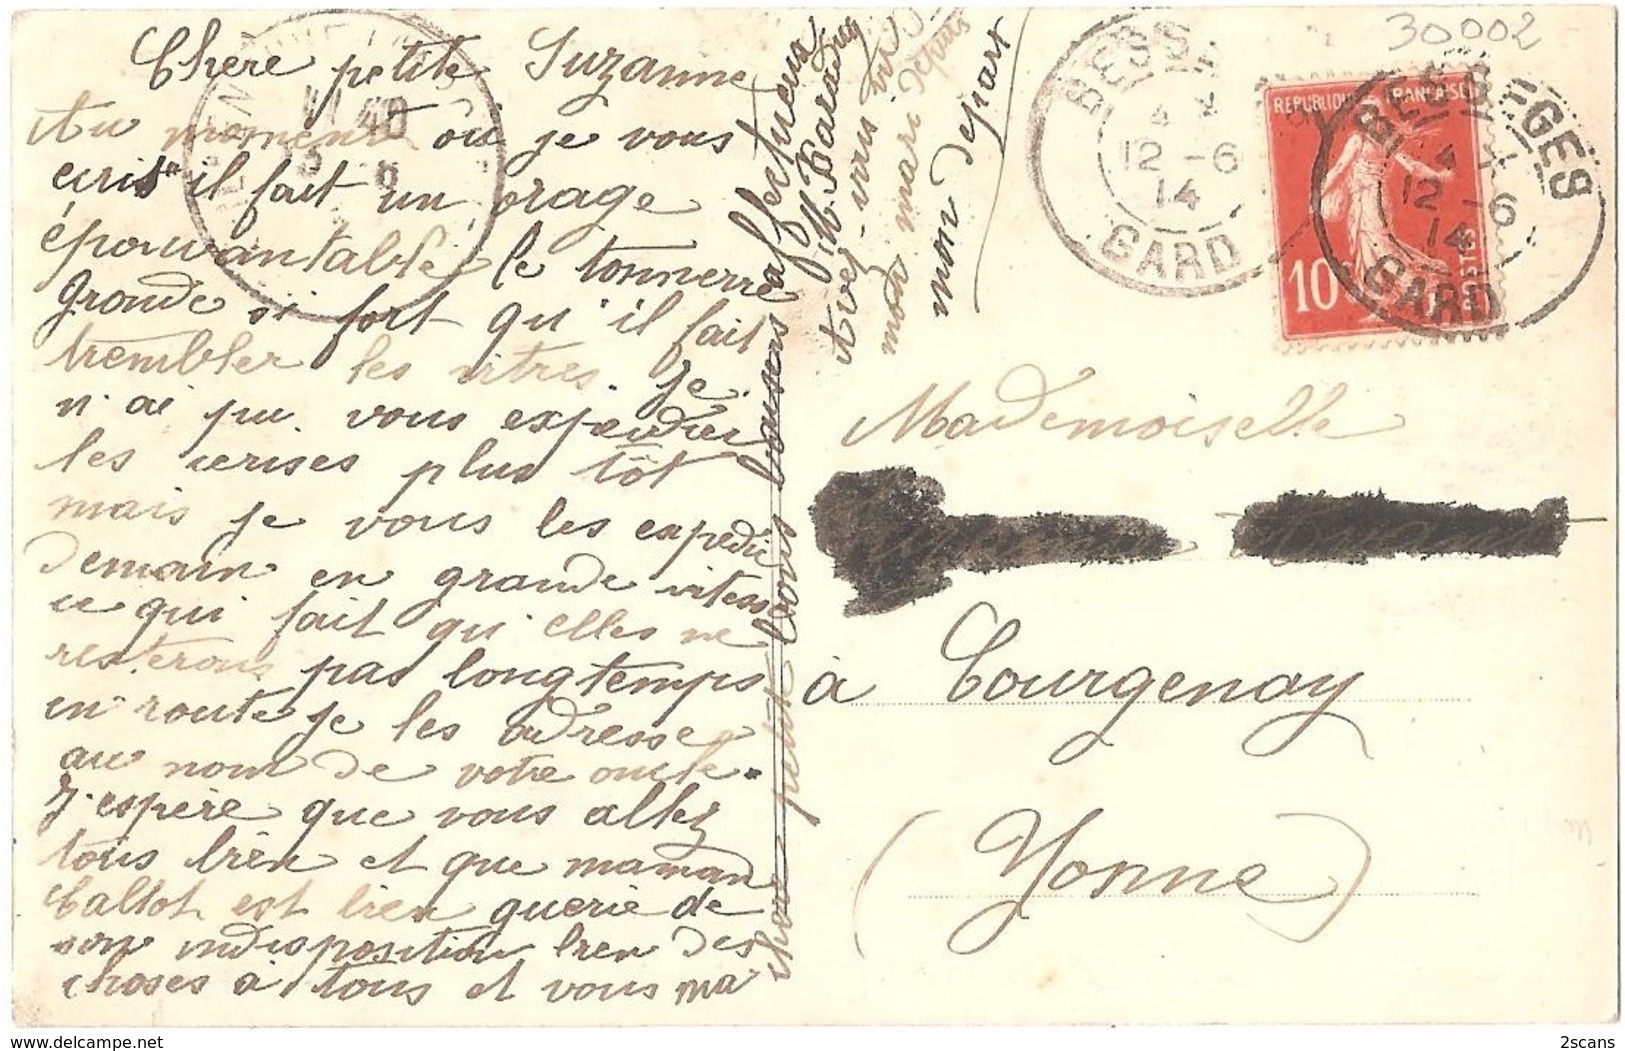 Chère petite Suzanne
Au moment où je vous
ecris il fait un orage
épouvantable le tonnerre
gronde si fort qu'il fait
trembler les vitres. je
n'ai pu vous expedier
les cerises plus tôt
mais je vous les expedie
demain en grande vitesse
ce qui fait qu'elles ne
resterons pas longtemps
en route je les adresse
au nom de votre oncle.
J'espère que vous allez
tous bien et que maman
Callot est bien guerie de
son indisposition bien des
choses à tous et vous ma
petite bons baisers affectueux
M.
Avez-vous vu
mon mari depuis
mon depart
30002
BESS
4 *
12 -6
14
GARD
REPUBLIQUE FRANÇAISE
10c
POSTES
BESSEGES
4 *
12 -6
14
GARD
11 40
Mademoiselle
à Courgenay
(Yonne)
delcampe.net
2scans